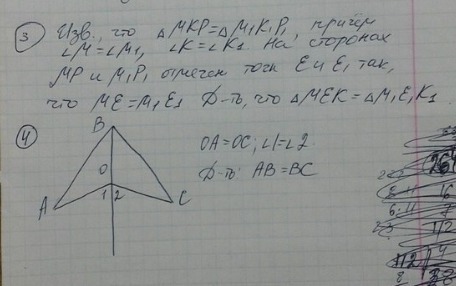 ③ Изв., что △MKP=△M₁K₁P₁, причём
∠M=∠M₁, ∠K=∠K₁. На сторонах
MP и M₁P₁ отмечен точк E и E₁ так,
что ME=M₁E₁ Д-ть, что △MEK=△M₁E₁K₁.
④
B
OA=OC; ∠1=∠2
Д-ть: AB=BC
O
1 2
A
C